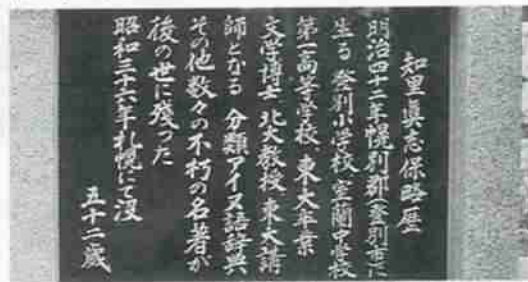 知里眞志保略歴
明治四十二年幌別郡(登別市)に
生る 登別小学校 室蘭中学校
第一高等学校 東大卒業
文学博士 北大教授 東大講
師となる 分類アイヌ語辞典
その他数々の不朽の名著が
後の世に残った
昭和三十六年札幌にて没
五十二歳